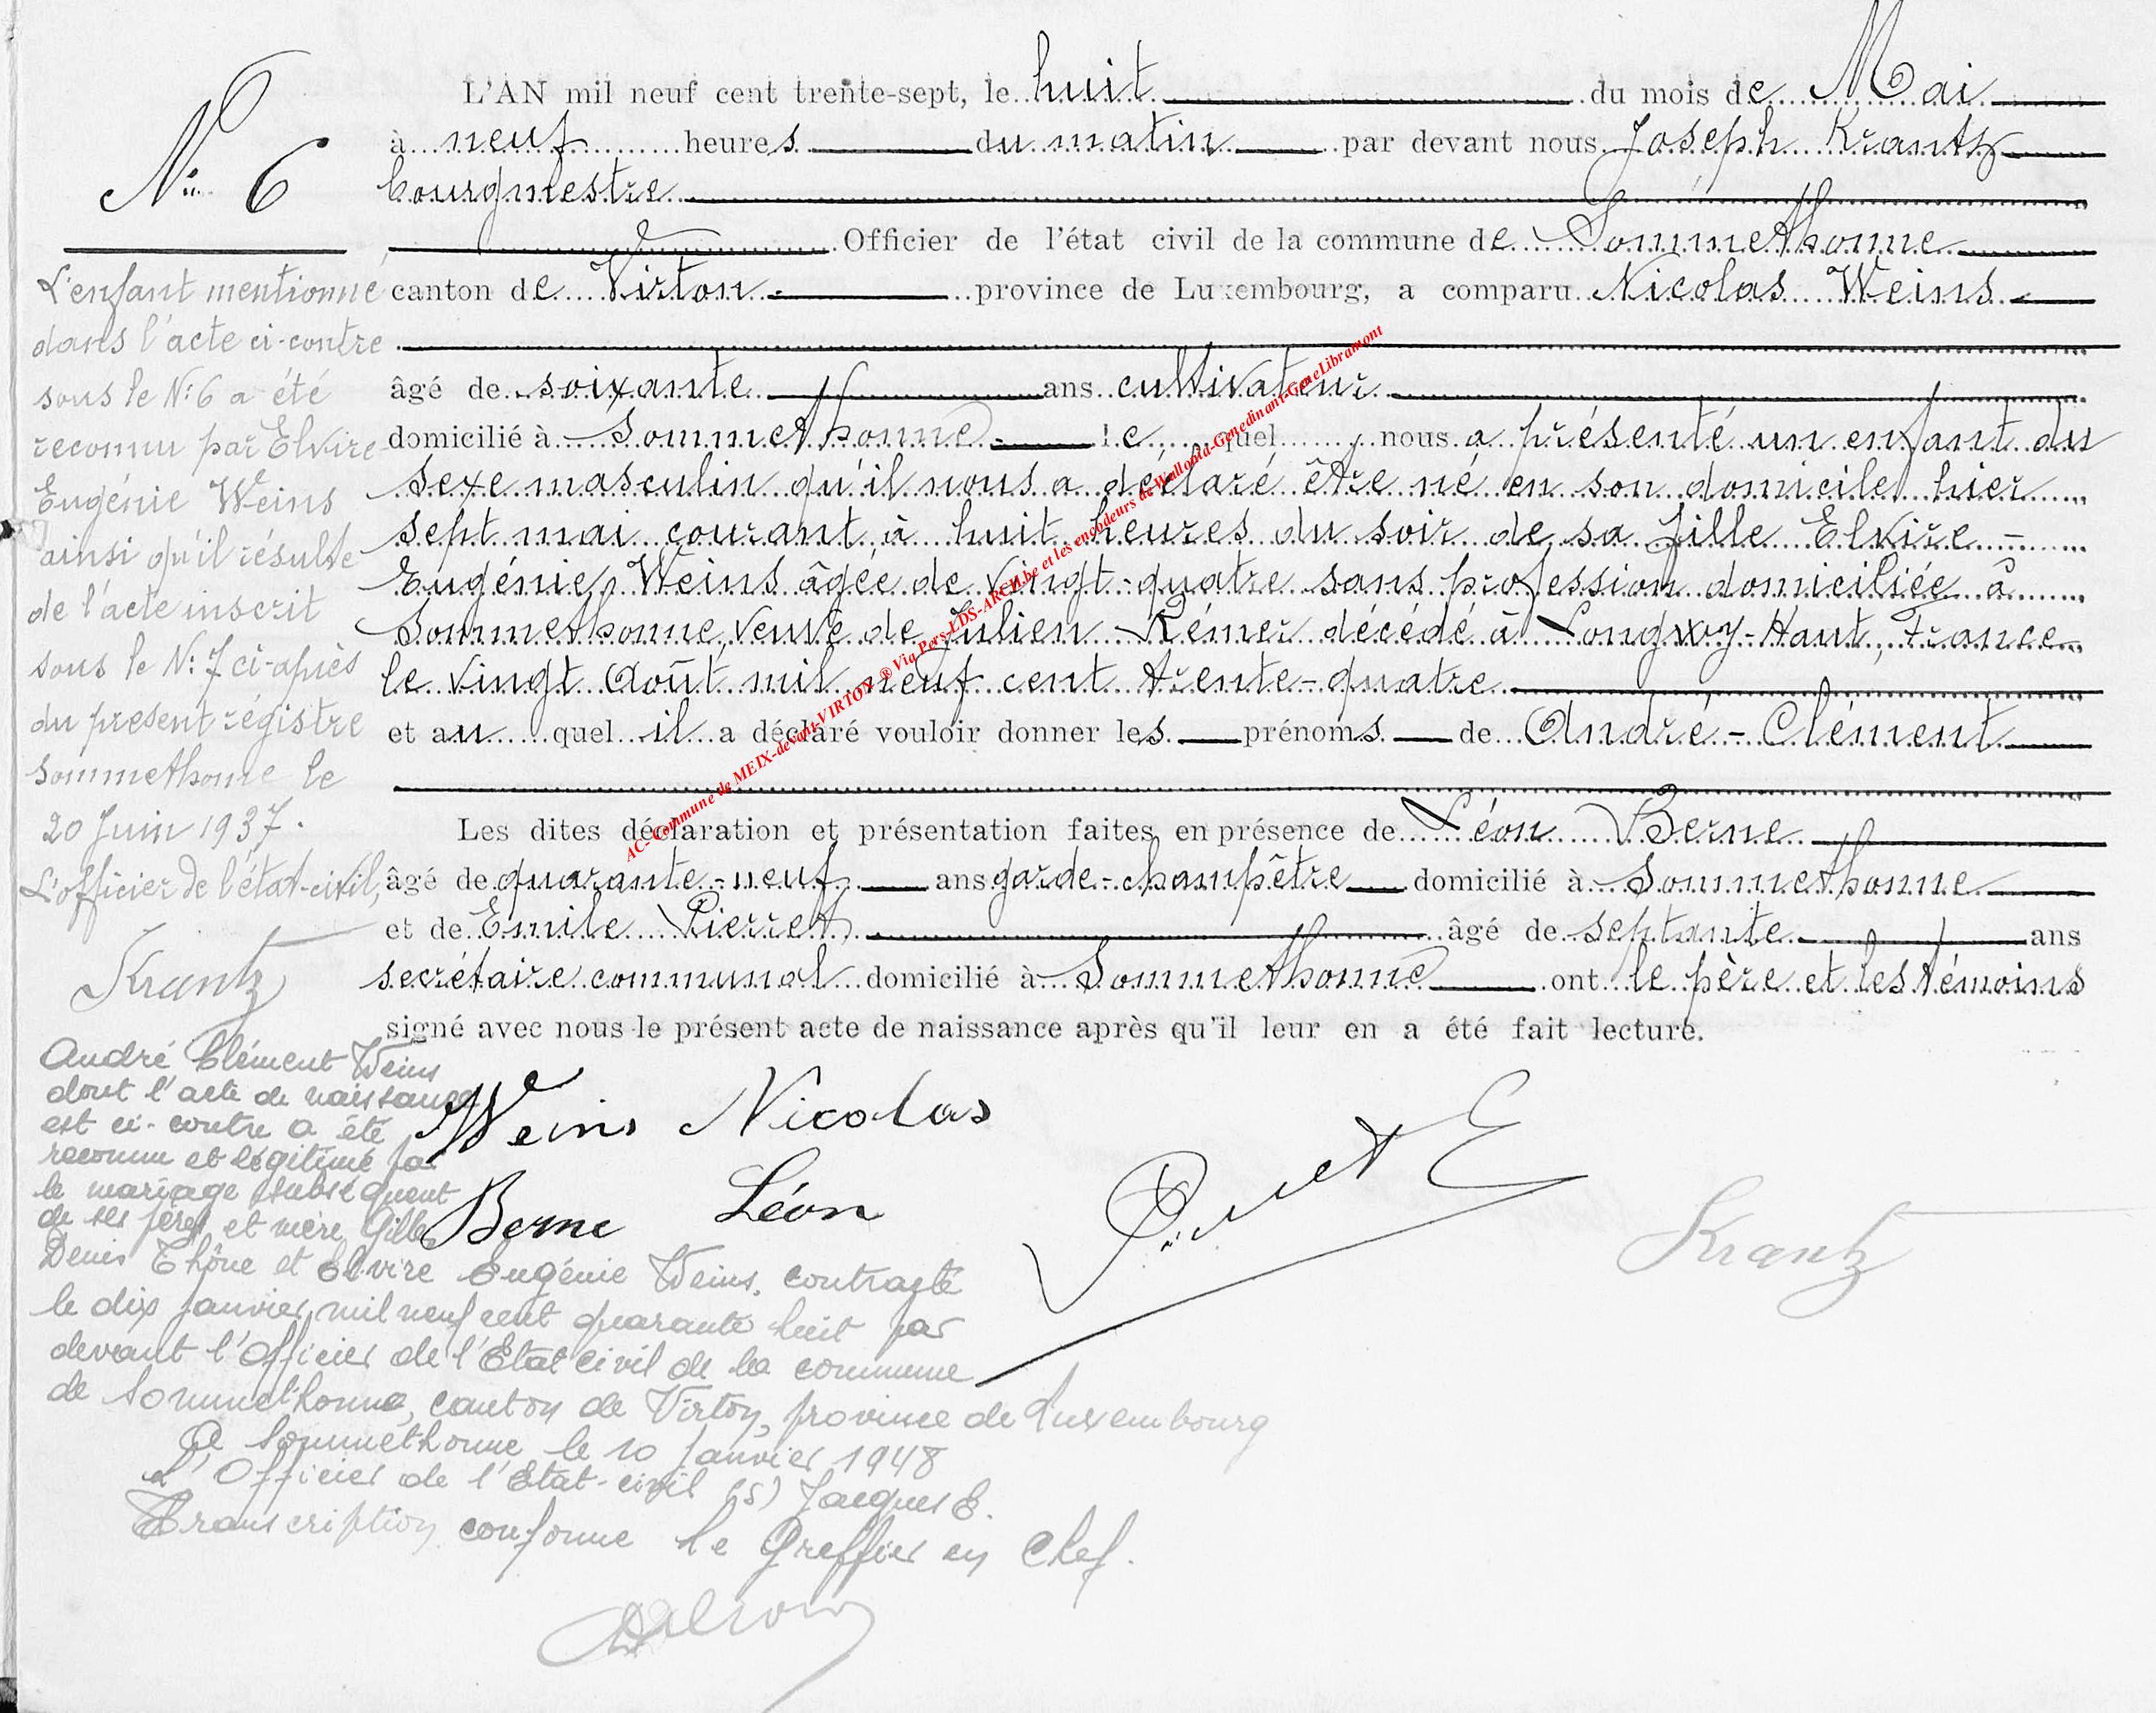 N° 6
L'AN mil neuf cent trente-sept, le huit du mois de Mai
à neuf heures du matin par devant nous Joseph Krantz
bourgmestre
Officier de l'état civil de la commune de Sommethonne
canton de Virton province de Luxembourg, a comparu Nicolas Weins
âgé de soixante ans cultivateur
domicilié à Sommethonne lequel nous a présenté un enfant du
sexe masculin qu'il nous a déclaré être né en son domicile hier
sept mai courant à huit heures du soir de sa fille Elvire-
Eugénie Weins âgée de vingt-quatre sans profession domiciliée à
Sommethonne, veuve de Julien Rémer décédé à Longwy-Haut, France
le vingt Août mil neuf cent trente-quatre
et auquel il a déclaré vouloir donner les prénoms de André-Clément
Les dites déclaration et présentation faites en présence de Léon Berne
âgé de quarante-neuf ans garde-champêtre domicilié à Sommethonne
et de Emile Pierret âgé de septante ans
secrétaire communal domicilié à Sommethonne ont le père et les témoins
signé avec nous le présent acte de naissance après qu'il leur en a été fait lecture.
Weins Nicolas
Berne Léon
Pierret E
Krantz
L'enfant mentionné
dans l'acte ci-contre
sous le N: 6 a été
reconnu par Elvire-
Eugénie Weins
ainsi qu'il résulte
de l'acte inscrit
sous le N: 7 ci-après
du présent régistre
Sommethonne le
20 Juin 1937.
L'officier de l'état-civil,
Krantz
André Clément Weins
dont l'acte de naissance
est ci-contre a été
reconnu et légitimé par
le mariage subséquent
de ses père et mère Gilles
Denis Thône et Elvire Eugénie Weins, contracté
le dix janvier mil neuf cent quarante huit par
devant l'Officier de l'Etat civil de la commune
de Sommethonne, canton de Virton, province de Luxembourg
A Sommethonne le 10 Janvier 1948
L'Officier de l'Etat-civil (s) Jacques E.
Transcription conforme le Greffier en Chef.
AC-Commune de MEIX-devant-VIRTON ® Via Pers-LDS-ARCH.be et les encodeurs de Wallonia-Genedinant-GeneLibramont